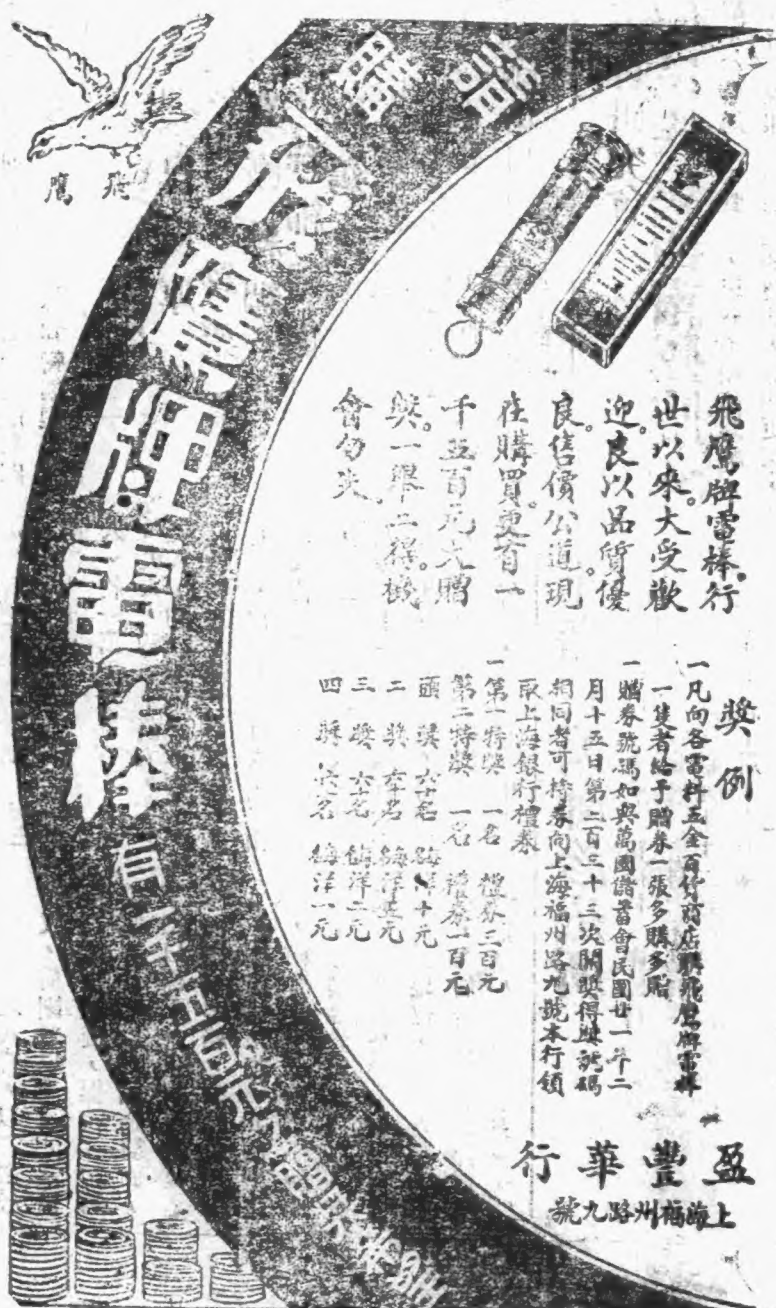 請購
飛鷹牌電棒
有一千五百元之贈獎
飛鷹
飛鷹牌電棒。行
世以來。大受歡
迎。良以品質優
良。售價公道。現
在購買更有一
千五百元大贈
獎。一舉二得。機
會勿失
獎例
一凡向各電料五金百貨商店購飛鷹牌電棒
一隻者給予贈券一張多購多贈
一贈券號碼如與萬國儲蓄會民國廿一年二
月十五日第二百三十三次開獎得獎號碼
相同者可持券向上海福州路九號本行領
取上海銀行禮券
一第一特獎 一名 禮券三百元
第二特獎 一名 禮券一百元
頭獎 六十名 海洋十元
二獎 六十名 海洋五元
三獎 六十名 海洋二元
四獎 名 海洋一元
盈豐華行
上海福州路九號